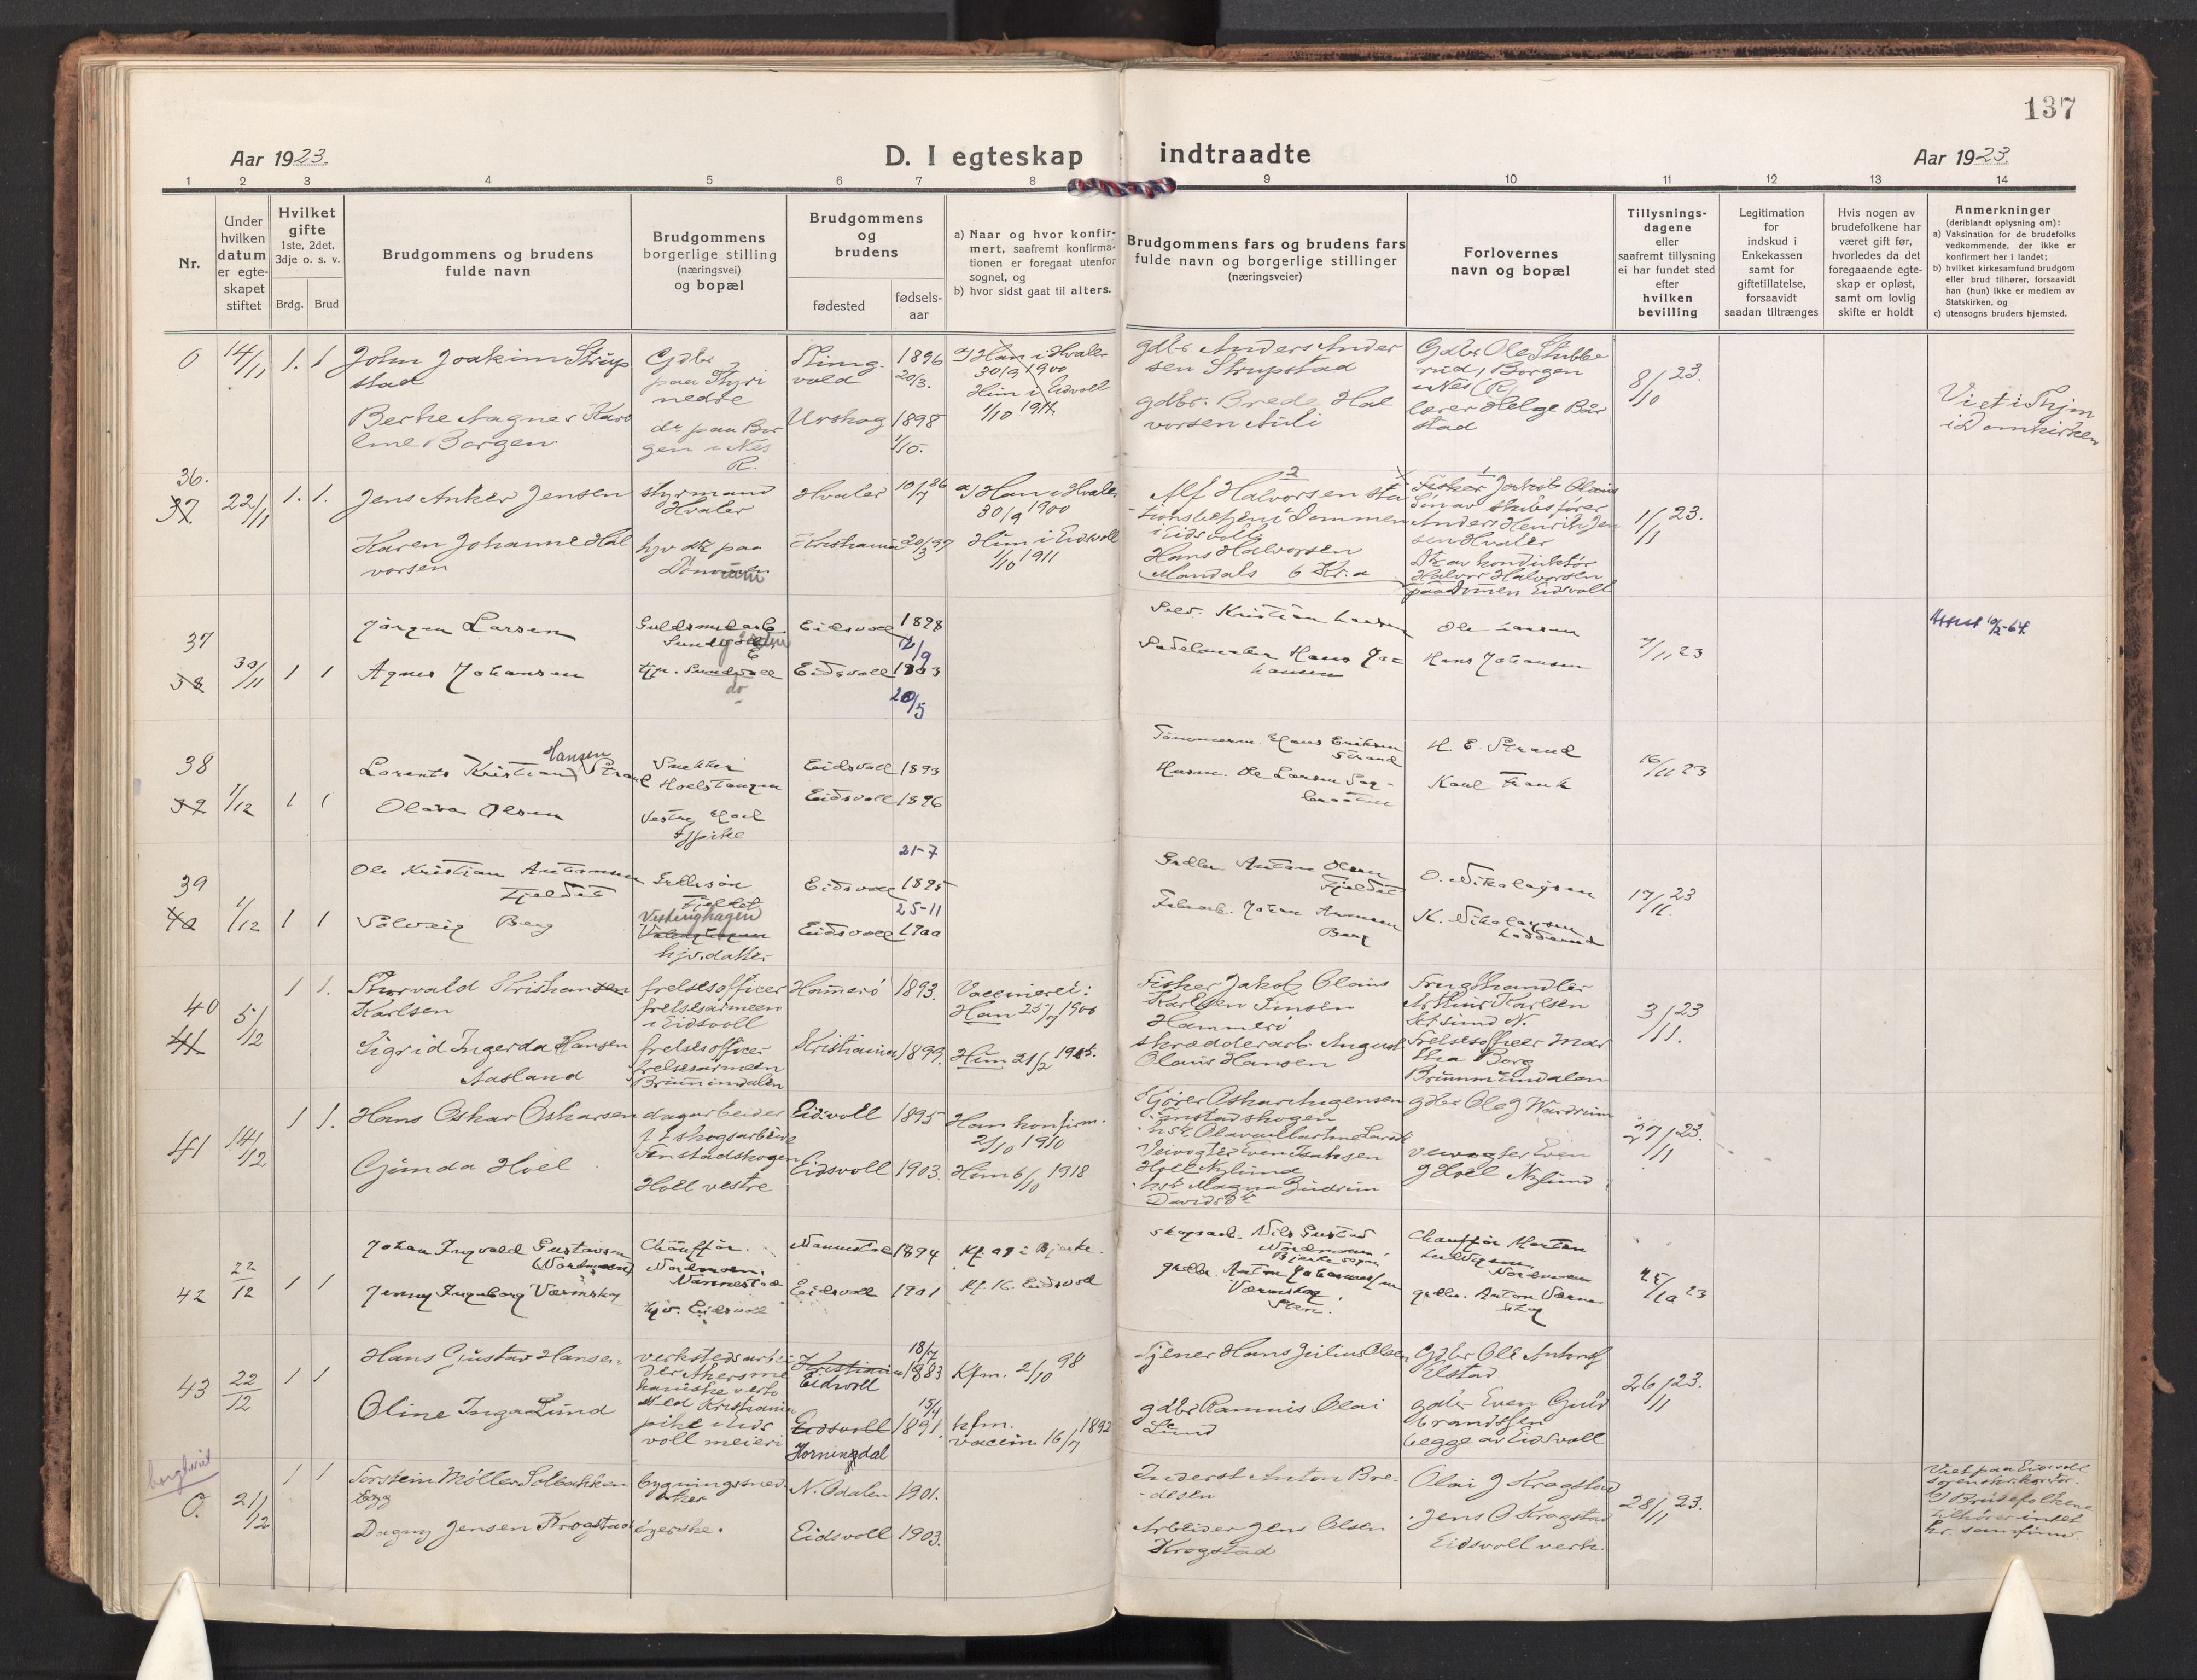 137
Aar 1923.
D. I egteskap indtraadte
Aar 1923.
1 2 3 4 5 6 7 8 9 10 11 12 13 14
Nr.
Under hvilken datum er egteskapet stiftet
Hvilket gifte
1ste, 2det, 3dje o. s. v.
Brdg. Brud
Brudgommens og brudens fulde navn
Brudgommens borgerlige stilling (næringsvei) og bopæl
Brudgommens og brudens
fødested
fødselsaar
a) Naar og hvor konfirmert, saafremt konfirmationen er foregaat utenfor sognet, og
b) hvor sidst gaat til alters.
Brudgommens fars og brudens fars fulde navn og borgerlige stillinger (næringsveier)
Forlovernes navn og bopæl
Tillysningsdagene eller saafremt tillysning ei har fundet sted efter hvilken bevilling
Legitimation for indskud i Enkekassen samt for giftetillatelse, forsaavidt saadan tiltrænges
Hvis nogen av brudefolkene har været gift før, hvorledes da det foregaaende egteskap er opløst, samt om lovlig skifte er holdt
Anmerkninger
(deriblandt oplysning om):
a) Vaksination for de brudefolks vedkommende, der ikke er konfirmert her i landet;
b) hvilket kirkesamfund brudgom eller brud tilhører, forsaavidt han (hun) ikke er medlem av Statskirken, og
c) utensogns bruders hjemsted.
0 14/11 1. 1 John Joakim Strupstad
Gdbr. paa Styri nedre
1896 20/3.
a) Han i Hvaler 30/9 1900
Hun i Eidsvoll 1/10 1911
gdbr. Anders Andersen Strupstad
Gdbr Ole Stubberud, Borgen i Nes (R)
8/10 23.
Berthe Agnes Karoline Borgen
dr. paa Borgen i Nes R.
Urskog 1898 1/10.
gdbr. Brede Halvorsen Auli
lærer Helge Bårstad
Viet i Thjm i Domkirken
36. 37. 22/11 1. 1. Jens Anker Jensen
styrmand Hvaler
Hvaler 10/7 86
a) Han i Hvaler 30/9 1900
2
Alf Halvorsen stationsbetjent Dommen i Eidsvoll
1
Fisker Jakob Olaus
Søn av skibsfører Anders Henrik Jensen Hvaler
1/11 23.
Karen Johanne Halvorsen
hjv. dtr. paa
Kristiania 20/3 97
Hun i Eidsvoll 1/10 1911
Hans Halvorsen
Mandals 6 Kr.a
Dtr. av konduktør Halvor Halvorsen paa Dømen Eidsvoll
37 38 30/11 1 1 Jørgen Larsen
Guldsmedarb.
Eidsvoll 1898 12/9
Selv. Kristian Larsen
Ole Larsen
4/11 23
Attest 10/2-64.
Agnes Johansen
tjp. Sundvoll
do
Eidsvoll 1903 20/5
Sadelmaker Hans Johansen
Hans Johansen
38 39 1/12 1 1 Lorents Kristian Hansen Strand
Snekker Hoelstangen
Eidsvoll 1893
Tømmerm. Hans Eriksen Strand
H. E. Strand
16/11 23
Olava Olsen
Eidsvoll 1896
Husm. Ole Larsen
Karl Frank
39 40 1/12 1 1 Ole Kristian Antonsen Fjeldet
Gdbrsøn Fjeldet
Eidsvoll 21-7 1895
Gdbr Anton Olsen Fjeldet
O. Nikolaysen
17/11 23
Solveig Berg
Vestenghagen
hjv. datter
Eidsvoll 25-11 1900
Fabrarb. Johan Berg
K. Nikolaysen
40 41 5/12 1 1. Thorvald Kristiansen Karlsen
frelsesofficer frelsesarmeen i Eidsvoll
Hamerö 1893.
Vaccineret:
Han 25/7 1900
Fisker Jakob Olaus Karlsen Finsen Hammerö
Frugthandler Arthur Karlsen
3/11 23.
Sigrid Ingerda Hansen Aasland
frelsesofficer frelsesarmeen Brummundalen
Kristiania 1899.
Hun 21/2 1915.
skrædderarb. August Olaus Hansen
Frelsesofficer Martha Borg Brummundalen
41 14/12 1 1. Hans Oskar Oskarsen
dagarbeider skogsarbeide Finstadskogen
Eidsvoll 1895
Han konfirm. 2/10 1910
Kjører Oskar Jngensen Finstadskogen
gdbr Ole J Wardrum
27/11 23.
Gunda Hoel
Hoel vestre
Eidsvoll 1903.
Hun 6/10 1918
Veivogter Even Isaksen Hoel Nylund
hstr. Magna Gudrun Davidsdtr.
veivogter Even J Hoel Nylund
42 22/12 1 1 Johan Ingvald Gustavsen (Nordmoen)
Chauffør. Nordmoen, Nannestad
Nannestad 1894
Kf. 09 i Bjerke.
skogsarb. Nils Gustav Nordmoen, Bjerke sogn
Chauffør Morten Ludvigsen Nordmoen
25/10 23
Jenny Ingeborg Værnskog
hjv. Eidsvoll
Eidsvoll 1901
Kf. 16. Eidsvoll
gdbr. Anton Johannessen Værnskog,
gdbr. Anton Værnskog
43 22/12 1 1 Hans Gustav Hansen
verkstedsarbeider Akers mekaniske verksted Kristiania
Kristiania Eidsvoll 18/7 1883
Kfm. 2/10 98
Tjener Hans Julius Olsen
Gdbr Ole Antonsf Elstad
26/11 23.
Oline Inga Lund
pike i Eidsvoll meieri
Eidsvoll Horningdal 15/4 1891.
kfm.
vaccin. 16/7 1892
gdbr Ramnis Olai Lund
gdbr Even Guldbrandssen begge av Eidsvoll
borgl. viet
0. 21/12 1 1 Torstein Møller Solbakken
bygningssnedker
N. Odalen 1901.
Inderst Anton Bredesen
Olai J Kragstad
28/11 23.
Viet paa Eidsvoll sorenskr. kontor.
Brudefolkene tilhører intet kr. samfund.
Dagny Jensen Krogstad
syerske.
Eidsvoll 1903.
Arbeider Jens Olsen Krogstad
Jens O Kragstad
Eidsvoll verk.